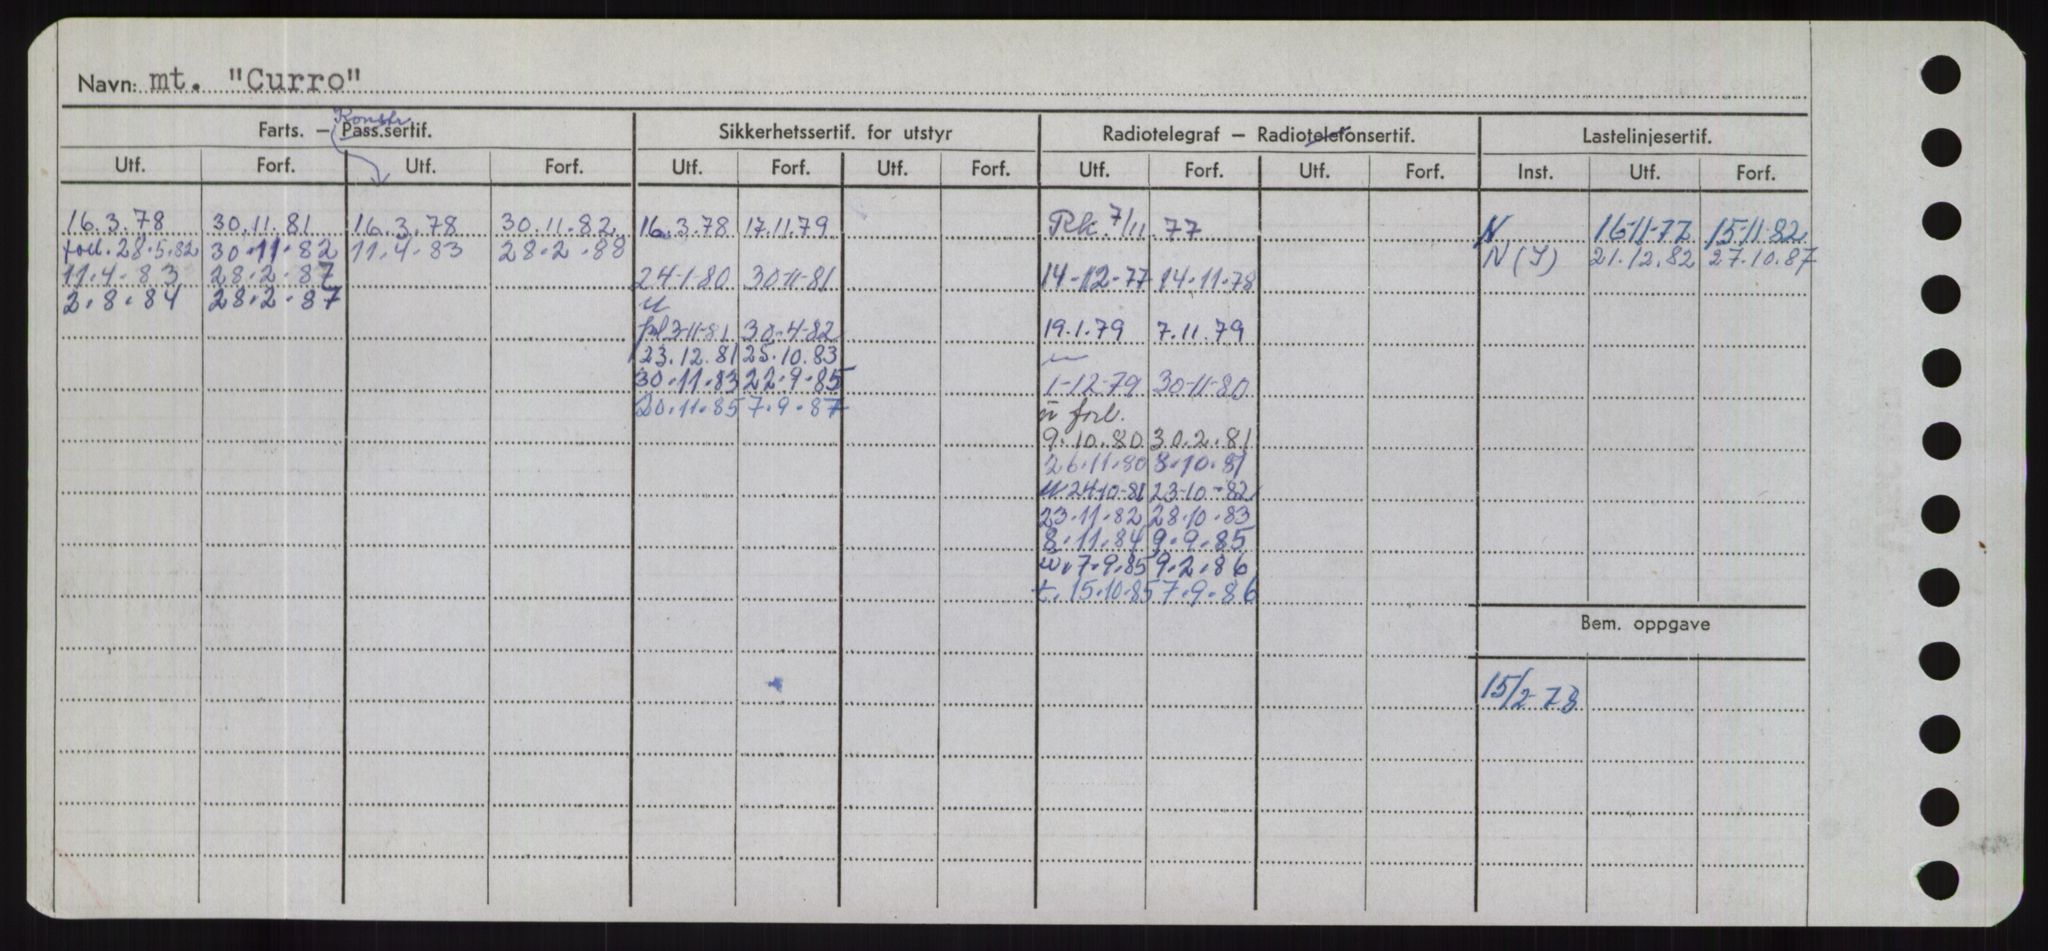 Navn: mt. "Curro"
Konstr.
Farts. – Pass.sertif. Sikkerhetssertif. for utstyr Radiotelegraf – Radiotelefonsertif. Lastelinjesertif.
Utf. Forf. Utf. Forf. Utf. Forf. Utf. Forf. Utf. Forf. Utf. Forf. Inst. Utf. Forf.
16.3.78 30.11.81 16.3.78 30.11.82 16.3.78 17.11.79 Rk. 7/11.77 N 16-11-77 15-11-82
forl. 28.5.82 30.11.82 11.4.83 28.2.88 N (I) 21.12.82 27.10.87
11.4.83 28.2.87 24-1-80 30-11-81 14-12-77 14.11.78
2.8.84 28.2.87
u
forl 3-11-81 30-4-82 19.1.79 7.11.79
23.12.81 25.10.83
30.11.83 22.9.85 1-12-79 30-11-80
20.11.85 7.9.87 u forl.
9.10.80 30.2.81
26.11.80 8.10.81
u 24-10-81 23-10-82
23.11.82 28.10.83
8.11.84 9.9.85
u. 7.9.85 9.2.86
t. 15.10.85 7.9.86
Bem. oppgave
15/2-78